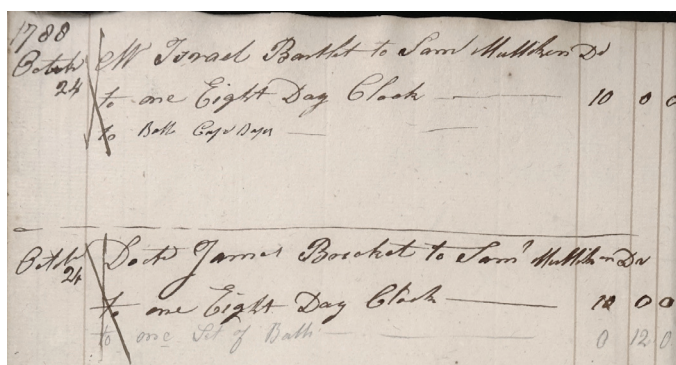 1788
Octobr Mr Israel Bartlet to Sam Mulliken Dr
24 to one Eight Day Clock 10 0 0
to Balls
Octobr Doctr James Bricket to Saml Mulliken Dr
24
to one Eight Day Clock 10 0 0
to one Set of Balls 0 12 0